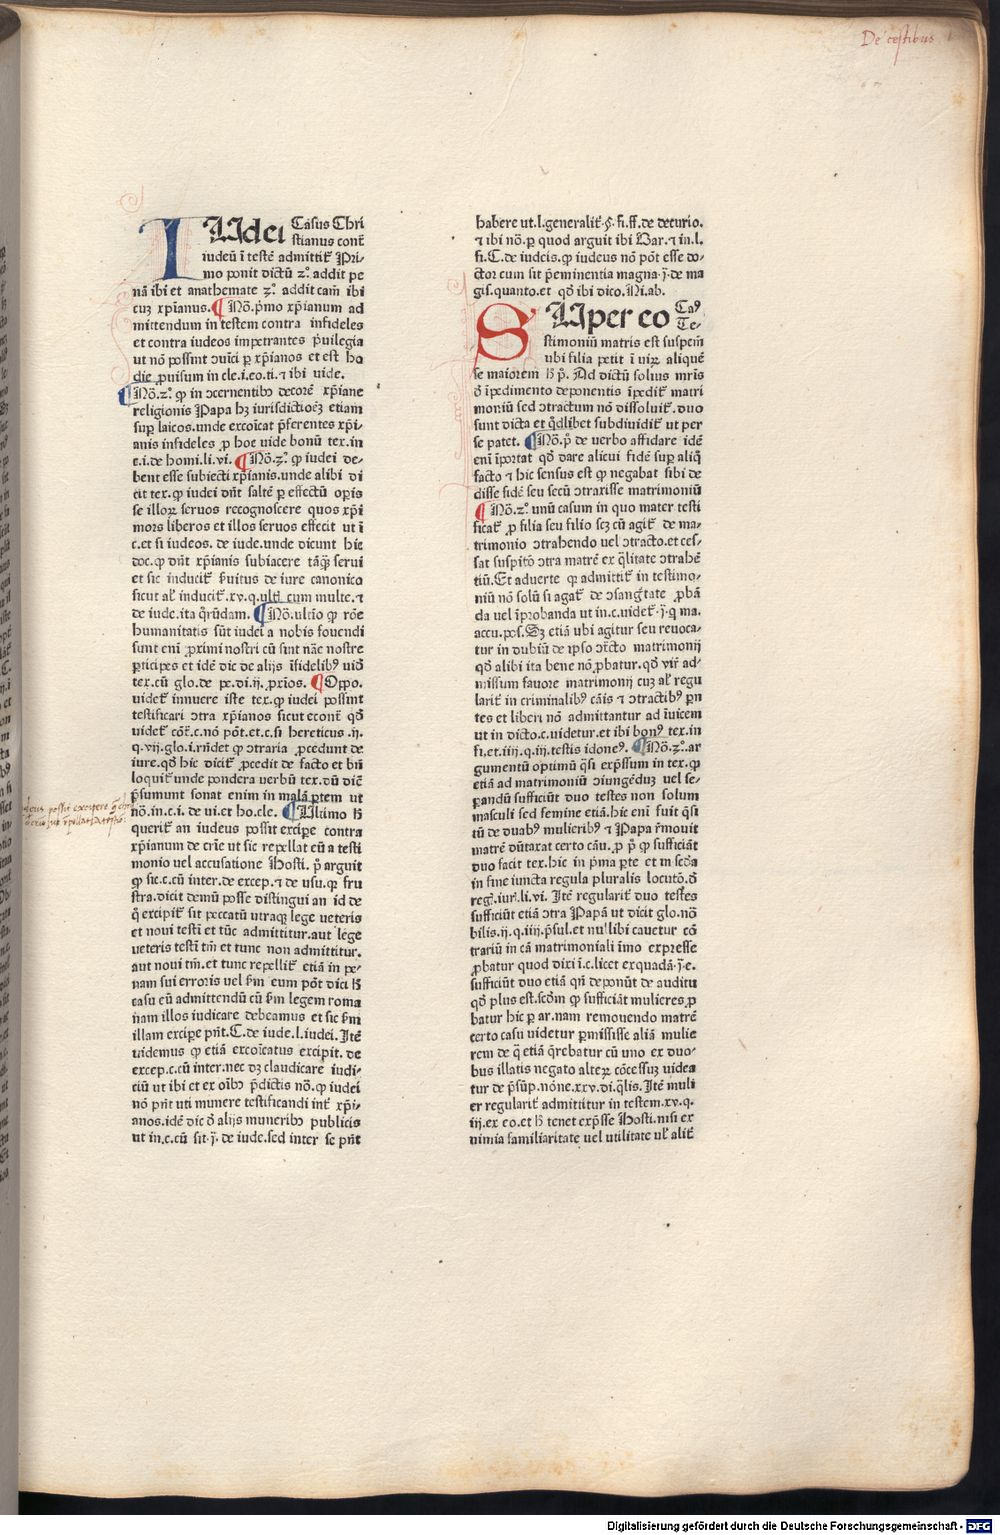 De testibus
IUdei Casus Chri
stianus cont̃
iudeũ ĩ testẽ admittit̃ Pri/
mo ponit dictũ zº. addit pe
nã ibi et anathemate zº. addit cam̃ ibi
cuȝ xp̃ianus. ¶ Nõ.p̃mo xp̃ianum ad
mittendum in testem contra infideles
et contra iudeos impetrantes p̃uilegia
ut nõ possint ꝯuĩci ꝑ xp̃ianos et est ho
die ꝓuisum in cle.i.eo.ti.⁊ ibi uide.
¶Nõ.zº. ꝙ in ꝯcernentibꝰ decorẽ xp̃iane
religionis Papa hȝ iurisdictiõeȝ etiam
suꝑ laicos.unde excõicat p̃ferentes xp̃i/
anis infideles ꝓ hoc uide bonũ tex.in
c.i.de homi.li.vi. ¶Nõ.zº. ꝙ iudei de/
bent esse subiecti xp̃ianis.unde alibi di
cit tex.ꝙ iudei dñt saltẽ ꝑ effectũ oꝑis
se illoꝝ seruos recognoscere quos xp̃i
mors liberos et illos seruos effecit ut ĩ
c.et si iudeos. de iude.unde dicunt hic
doc.ꝙ dñt xp̃ianis subiacere tãꝗ̃ serui
et sic inducit̃ ẜuitus de iure canonico
sicut al̃ inducit̃.xv.q.ulti cum multe.⁊
de iude.ita q̃rũdam. ¶Nõ.ultĩo ꝙ rõe
humanitatis sũt iudei a nobis fouendi
sunt eni ꝓximi nostri cũ sint nãe nostre
ꝑticipes et idẽ dic de alijs ĩfidelibꝰ uiδ
tex.cũ glo.de pe.di.ij. ꝓxĩos. ¶Oppo.
uidet̃ innuere iste tex.ꝙ iudei possint
testificari ꝯtra xp̃ianos sicut econt̃ qδ
uidet̃ cõt̃.c.nõ põt.et.c.si hereticus .ij.
q.vij.glo.i.rñdet ꝙ ꝯtraria ꝓcedunt de
iure.qδ hic dicit̃ ꝓcedit de facto et bñ
loquit̃ unde pondera uerbũ tex.dũ dic̃
p̃sumunt sonat enim in malã ꝑtem ut
nõ.in.c.i. de ui.et ho.cle. ¶Ultimo hͦ
querit̃ an iudeus possit exciꝑe contra
xp̃ianum de crĩe ut sic repellat eũ a testi
monio uel accusatione Hosti. pͦ arguit
ꝙ sic.c.cũ inter.de excep.⁊ de usu.ꝙ fru
stra.dicit demũ posse distingui an id de
q̊ excipit̃ sit peccatũ utraqȝ lege ueteris
et noui testĩ et tũc admittitur.aut lege
ueteris testĩ tm̃ et tunc non admittitur.
aut noui tm̃.et tunc repellit̃ etiã in pe/
nam sui erroris uel ẜm eum põt dici hͦ
casu eũ admittendũ cũ ẜm legem roma
nam illos iudicare debeamus et sic ẜm
illam exciꝑe pñt.C.de iude.l.iudei. Itẽ
uidemus ꝙ etiã excõicatus excipit. de
excep.c.cũ inter.nec dȝ claudicare iudi/
ciũ ut ibi et ex oĩbꝰ p̃dictis nõ.ꝙ iudei
nõ pñt uti munere testificandi int̃ xp̃i/
anos.idẽ dic δ alijs muneribꝰ publicis
ut in.c.cũ sit.j̃. de iude.sed inter se pñt
habere ut.l.generalit̃.§.fi.ff.de decurio.
⁊ ibi nõ.ꝑ quod arguit ibi Bar.⁊ in.l.
fi.C.de iudeis.ꝙ iudeus nõ põt esse do/
ctor cum sit p̃eminentia magna.j̃.de ma
gis.quanto.et qδ ibi dico.Ni.ab.
SUper eo Caꝰ
Te/
stimoniũ matris est suspem̃
ubi filia petit ĩ uiꝝ aliquẽ
se maiorem hͦ pͦ. Ad dictũ solius mr̃is
δ ĩpedimento deponentis ĩpedit̃ matri
moniũ sed ꝯtractum nõ dissoluit̃.duo
sunt dicta et q̃dlibet subdiuidit̃ ut per
se patet. ¶Nõ.pͦ de uerbo affidare idẽ
eni ĩportat qδ dare alicui fidẽ suꝑ aliq̊
facto ⁊ hic sensus est ꝙ negabat sibi de
disse fidẽ seu secũ ꝯtraxisse matrimoniũ
¶ Nõ.zº. unũ casum in quo mater testi
ficat̃ ꝓ filia seu filio scȝ cũ agit̃ de ma/
trimonio ꝯtrahendo uel ꝯtracto.et ces/
sat suspitõ ꝯtra matrẽ ex q̃litate ꝯtrahẽ
tiũ.Et aduerte ꝙ admittit̃ in testimo/
niũ nõ solũ si agat̃ de ꝯsang̃tate ꝓbã
da uel ĩprobanda ut in.c.uidet̃.j̃.q ma.
accu.pos.Sȝ etiã ubi agitur seu reuoca/
tur in dubiũ de ipso ꝯtc̃to matrimonij
qδ alibi ita bene nõ ꝓbatur.qδ vir̃ ad/
missum fauore matrimonij cuȝ al̃ regu
larit̃ in criminalibꝰ cãis ⁊ ꝯtractibꝰ pñ
tes et liberi nõ admittantur ad ĩuicem
ut in dicto.c.uidetur.et ibi bonꝰ tex.in
fi.et.iiij.q.iij.testis idoneꝰ. ¶Nõ.zº.ar
gumentũ optimũ q̃si exp̃ssum in tex.ꝙ
etiã ad matrimoniũ ꝯiungẽdũ uel se/
ꝑandũ sufficiũt duo testes non solum
masculi sed femine etiã.hic eni fuit q̃si
tũ de duabꝰ mulieribꝰ ⁊ Papa r̃mouit
matrẽ dũtaxat certo cãu.ꝓ pͦ ꝙ sufficiãt
duo facit tex.hic in p̃ma ꝑte et in sec̃da
in fine iuncta regula pluralis locutõ.δ
reg̃.iur̃.li.vi. Itẽ regularit̃ duo testes
sufficiũt etiã ꝯtra Papã ut dicit glo.nõ
bilis.ij.q.iiij.p̃sul.et nullibi cauetur cõ
trariũ in cã matrimoniali ĩmo expresse
ꝓbatur quod dixi ĩ.c.licet exquadã.j̃.e.
sufficiũt duo etiã qñ deponũt de auditu
qδ plus est.scδm ꝙ sufficiãt mulieres ꝓ
batur hic ꝑ ar.nam remouendo matrẽ
certo casu uidetur ꝑmisisse aliã mulie
rem de q̊ etiã q̃rebatur cũ uno ex duo/
bus illatis negato alteꝝ cõcessuȝ uidea
tur de p̃sũp.nõne.xxv.di.q̃lis. Itẽ muli
er regularit̃ admittitur in testem.xv.q.
iij.ex eo.et hͦ tenet exp̃sse Hosti.nisi ex
nimia familiaritate uel utilitate ul̃ alit̃
Digitalisierung gefördert durch die Deutsche Forschungsgemeinschaft - DFG